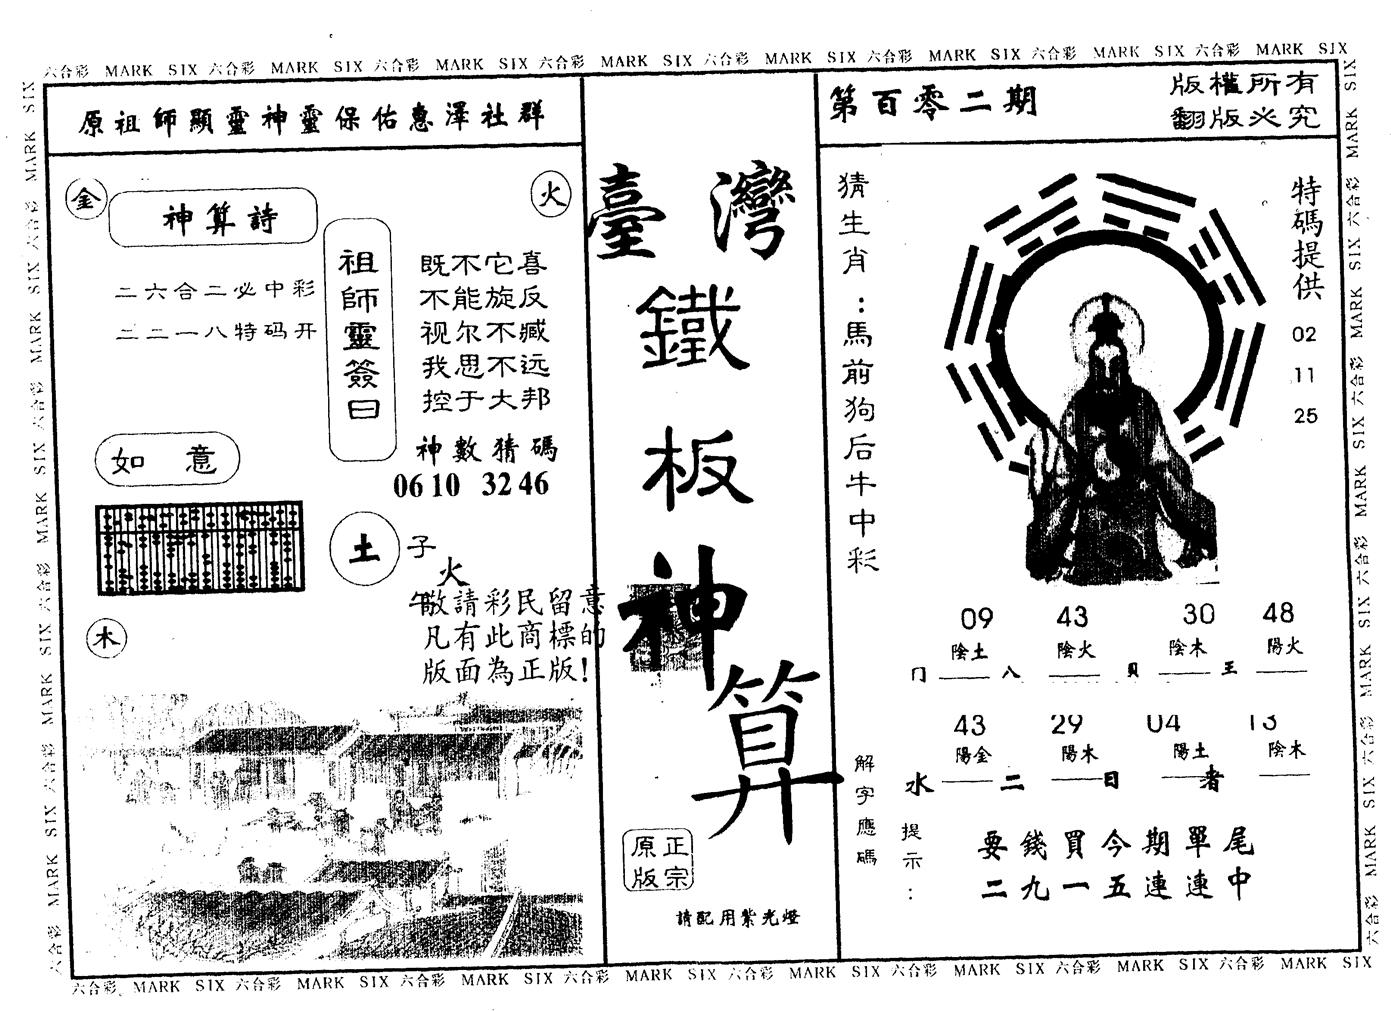 六合彩 MARK SIX 六合彩 MARK SIX 六合彩 MARK SIX 六合彩 MARK SIX 六合彩 MARK SIX 六合彩 MARK SIX 六合彩 MARK SIX 六合彩 MARK SIX
原祖師顯靈神靈保佑惠澤社群
金
神算詩
火
二六合二必中彩
二二一八特码开
祖師靈簽曰
既不它喜
不能旋反
视尔不臧
我思不远
控于大邦
神數猜碼
06 10 32 46
如意
土
子
火
午
敬請彩民留意
凡有此商標的
版面為正版!
木
臺灣
鐵
板
神
算
正宗
原版
請配用紫光燈
第百零二期
版權所有
翻版必究
猜生肖：馬前狗后牛中彩
特碼提供
02
11
25
09 43 30 48
陰土 陰火 陰木 陽火
冂 八 貝 王
43 29 04 13
陽金 陽木 陽土 陰木
水 二 日 者
解字應碼
提示：
要錢買今期單尾
二九一五連連中
六合彩 MARK SIX 六合彩 MARK SIX 六合彩 MARK SIX 六合彩 MARK SIX 六合彩 MARK SIX 六合彩 MARK SIX 六合彩 MARK SIX 六合彩 MARK SIX